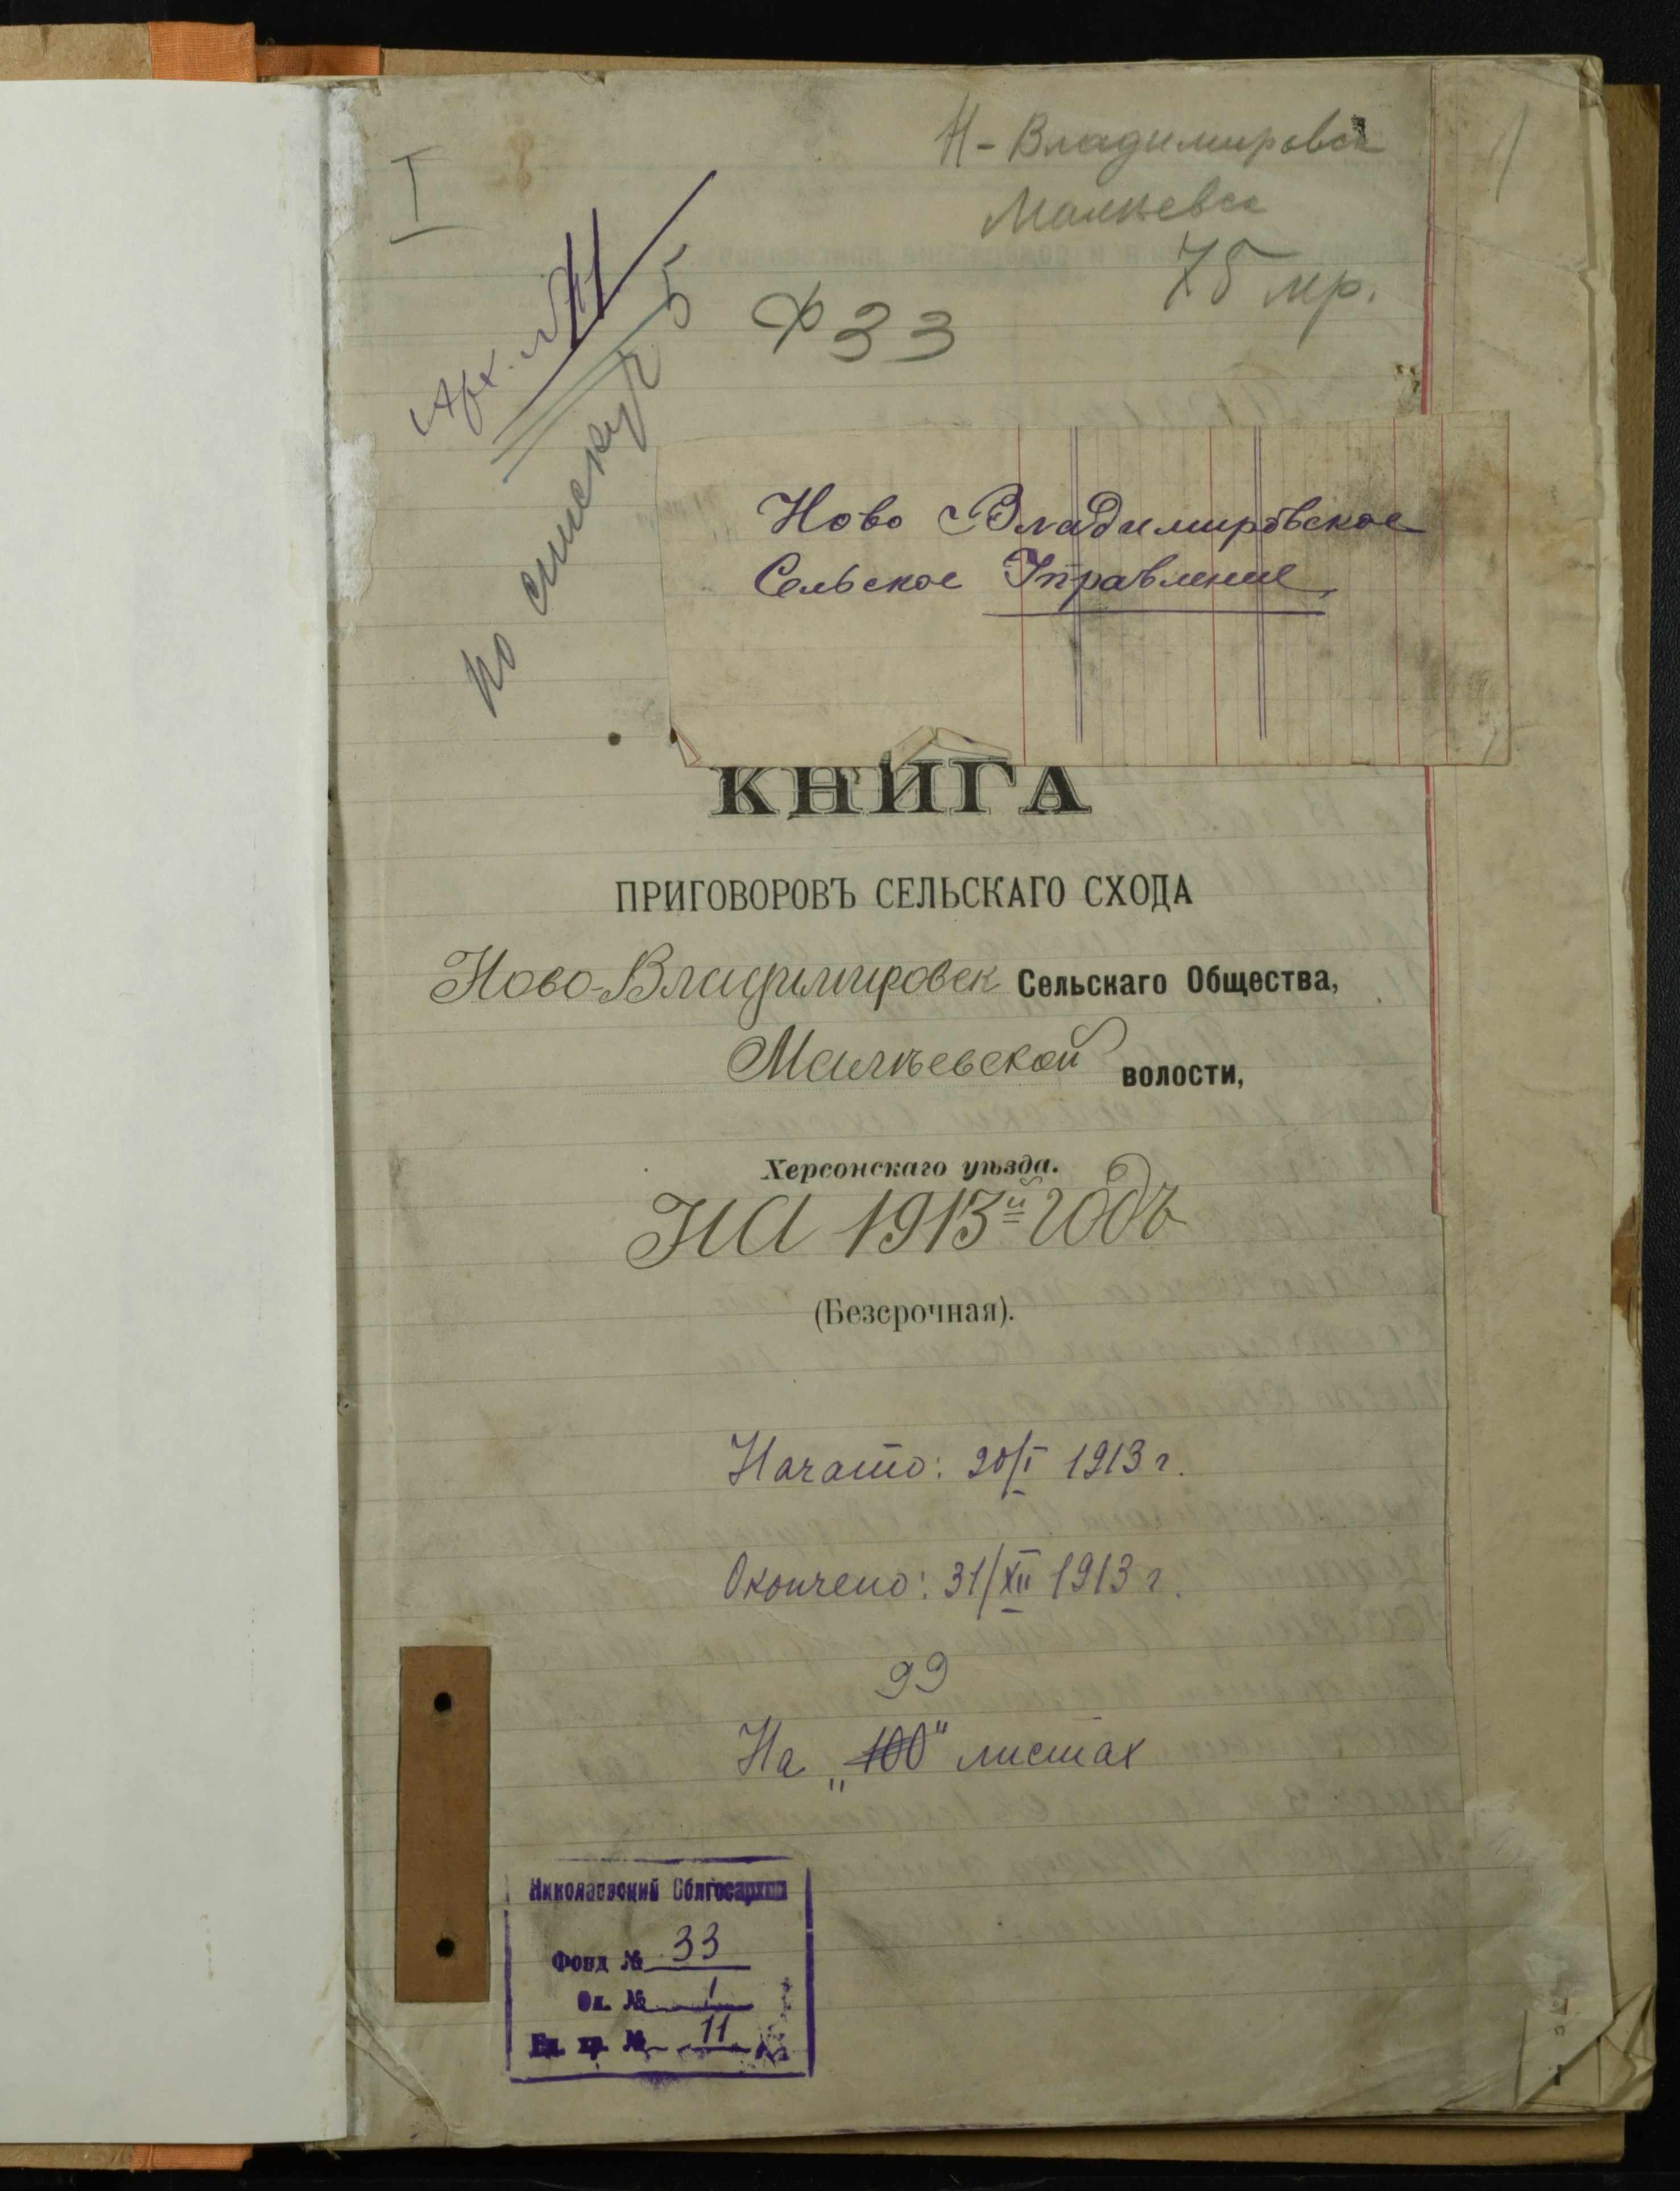 I
Н-Владимировск
Малеевск
75 пр.
Арх. №11
по списку 5
Ф 33
Ново Владимировское
Сельское Управление
КНИГА
ПРИГОВОРОВЪ СЕЛЬСКАГО СХОДА
Ново-Владимировск Сельскаго Общества,
волости,
Херсонскаго уѣзда.
НА 1913й годъ
(Безсрочная).
Начато: 20/I 1913 г.
Окончено: 31/XII 1913 г.
99
На "100" листах
Николаевский Облгосархив
Фонд № 33
Оп. № 1
Ед. хр. № 11